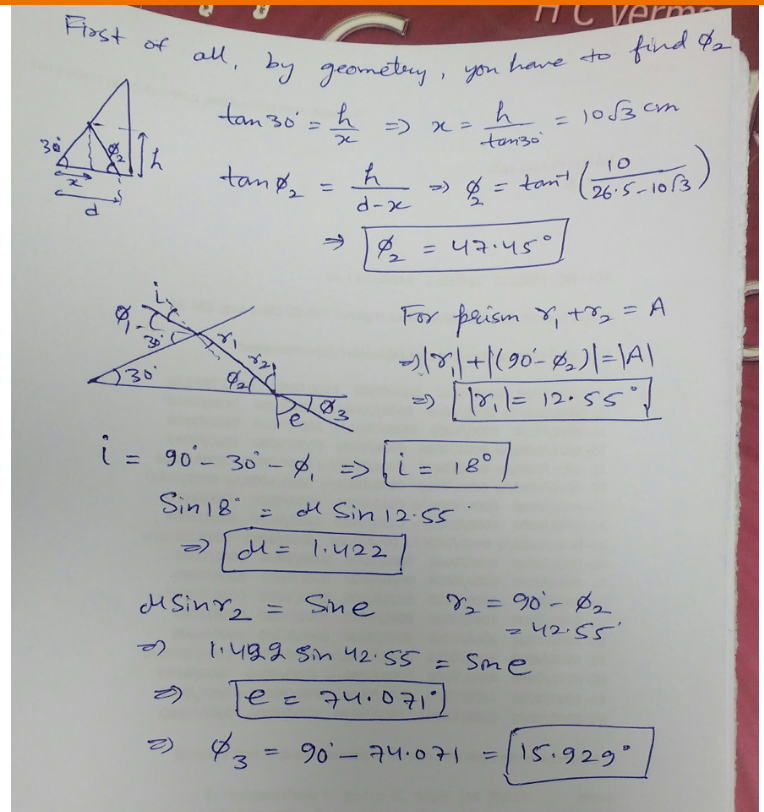 H C Verma
First of all, by geometry, you have to find φ₂
tan 30° = h/x ⇒ x = h/tan30° = 10√3 cm
30° φ₂ h
x
d
tan φ₂ = h/(d-x) ⇒ φ₂ = tan⁻¹ (10/(26.5-10√3))
⇒ φ₂ = 47.45°
i
φ₁ 30° r₁ r₂
30° φ₂ φ₃
e
For prism r₁ + r₂ = A
⇒ |r₁| + |(90°- φ₂)| = |A|
⇒ |r₁| = 12.55°
i = 90° - 30° - φ₁ ⇒ i = 18°
Sin 18° = μ Sin 12.55
⇒ μ = 1.422
μ Sin r₂ = Sin e r₂ = 90° - φ₂
= 42.55°
⇒ 1.422 Sin 42.55 = Sin e
⇒ e = 74.071°
⇒ φ₃ = 90° - 74.071 = 15.929°